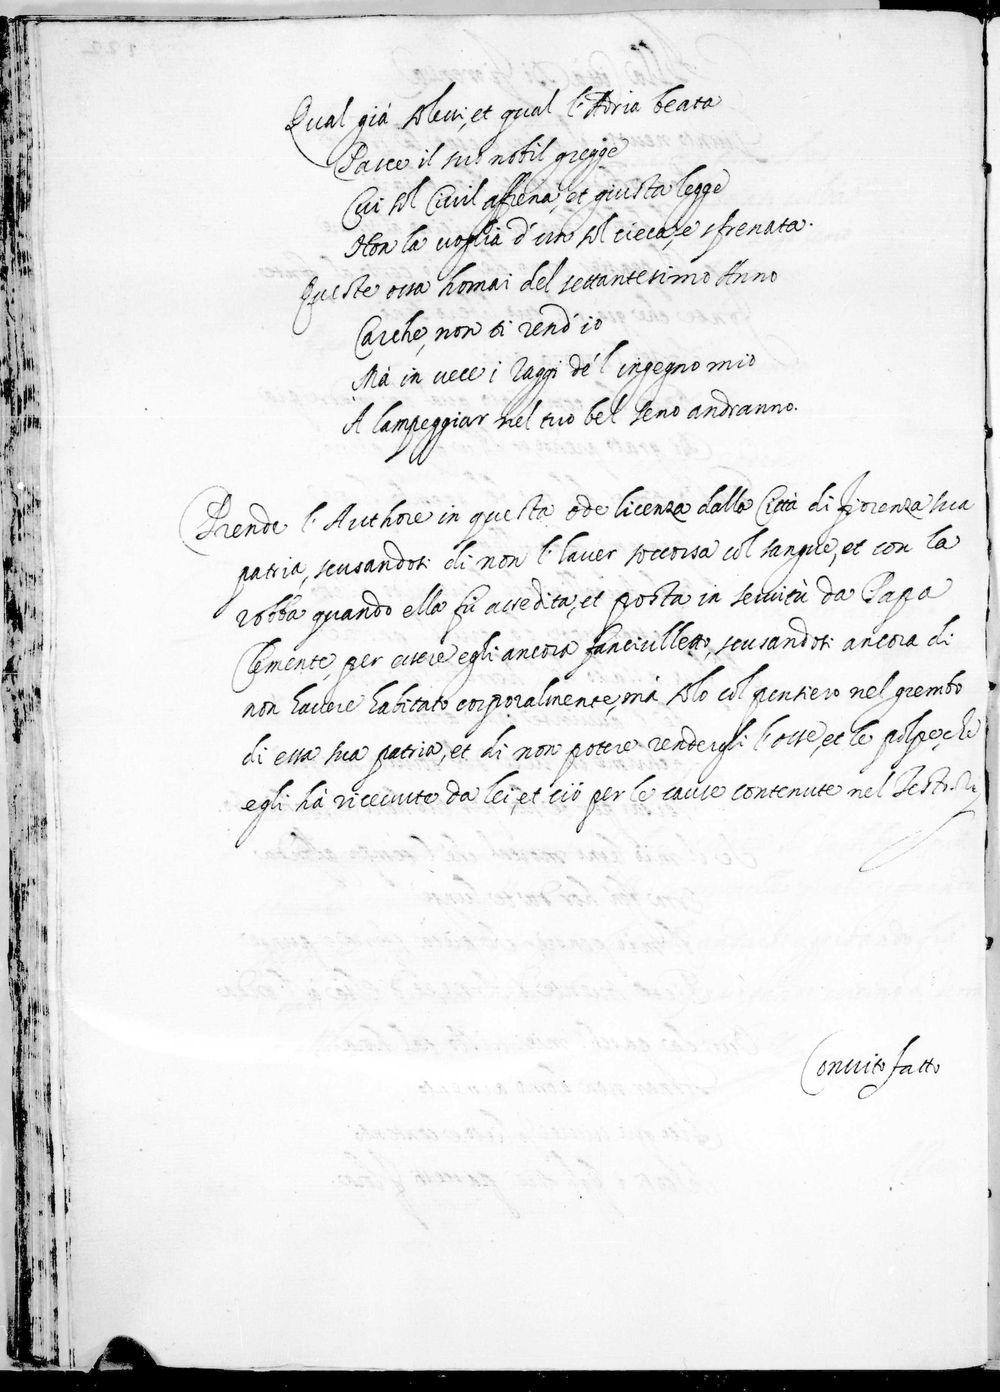 Qual già solevi, et qual l'Adria beata
Pasce il suo nobil gregge
Cui sol Civil affrena, et giusta legge
Non la voglia d'un sol cieca, e sfrenata.
Queste ossa homai del settantesimo Anno
Carche, non ti rend'io
Mà in vece i raggi de'l ingegno mio
A lampeggiar nel tuo bel seno andranno.
Prende l'Authore in questa ode licenza dalla Città di Fiorenza sua
patria, scusandosi di non l'haver soccorsa col sangue, et con la
robba quando ella fù assedita, et posta in servitù da Papa
Clemente, per essere egli ancora fanciulletto, scusandosi ancora di
non havere habitato corporalmente, mà solo col pensiero nel grembo
di essa sua patria, et di non potere rendergli l'osse, et le polpe, che
egli hà ricevute da lei, et ciò per le cause contenute nel Testo.
Convito fatto